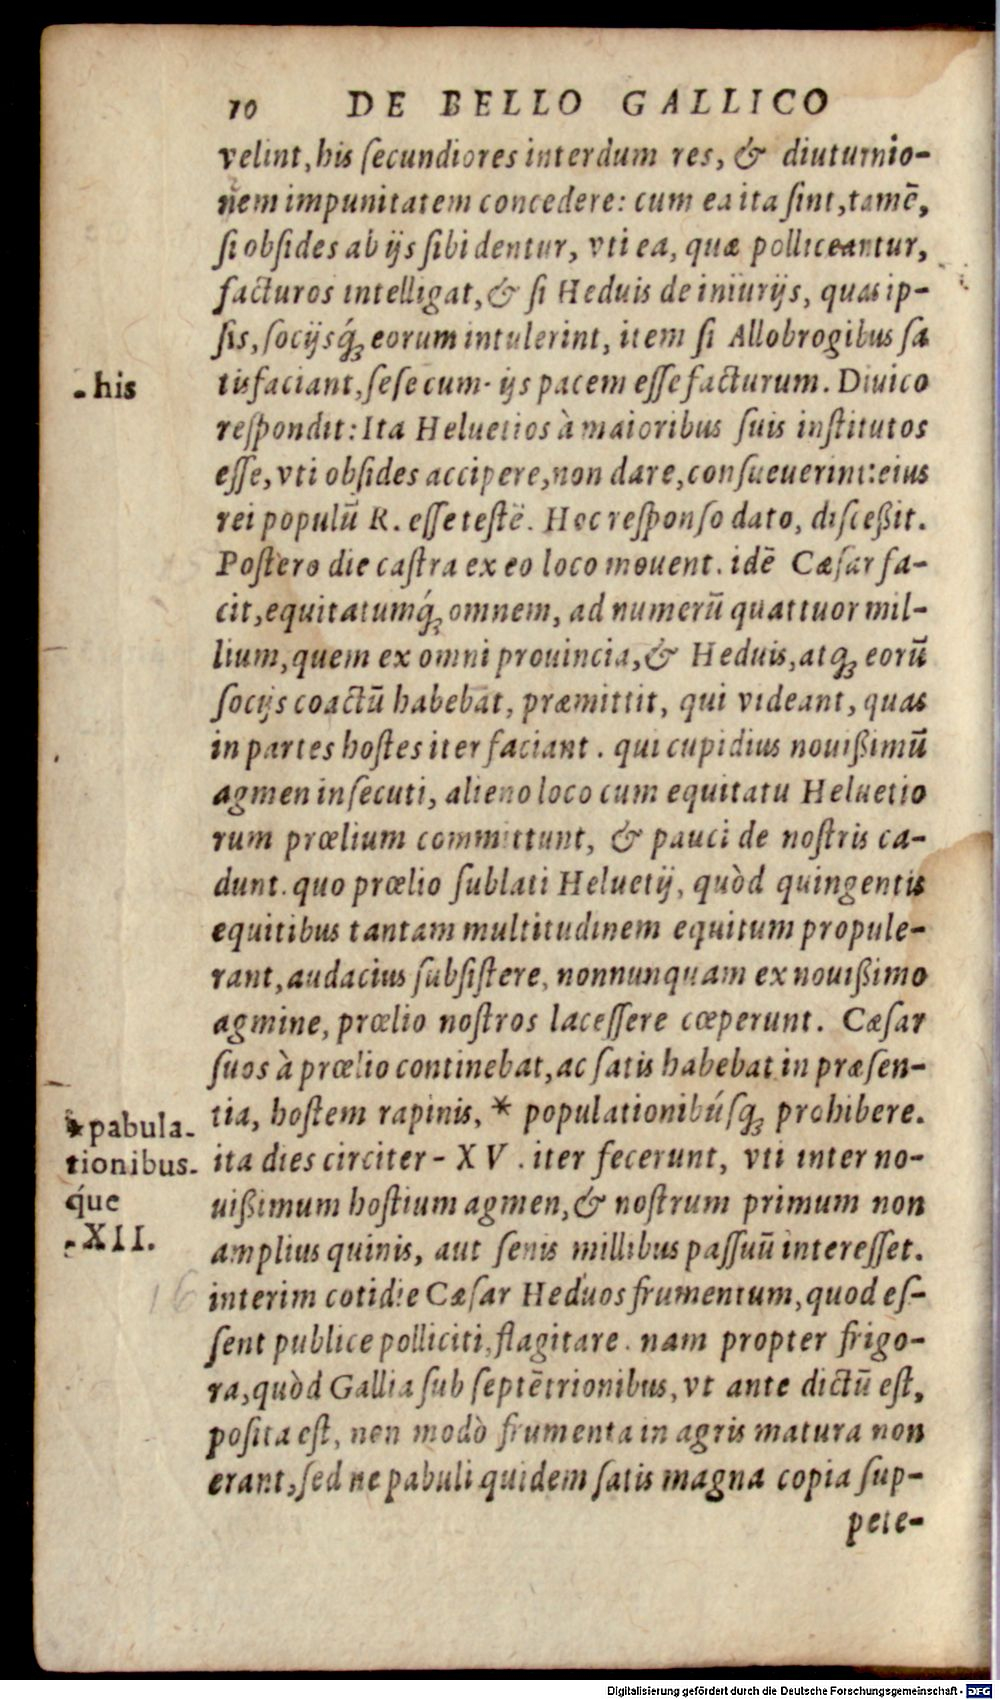 10 DE BELLO GALLICO
velint, his ſecundiores interdum res, & diuturnio-
nem impunitatem concedere: cum ea ita ſint, tamē,
ſi obſides ab ijs ſibi dentur, vti ea, quæ polliceantur,
facturos intelligat, & ſi Heduis de iniurijs, quas ip-
ſis, ſocijsq́ꝫ eorum intulerint, item ſi Allobrogibus ſa
- his
tisfaciant, ſeſe cum - ijs pacem eſſe facturum. Diuico
reſpondit: Ita Heluetios à maioribus ſuis inſtitutos
eſſe, vti obſides accipere, non dare, conſueuerint: eius
rei populū R. eſſe teſtē. Hoc reſponſo dato, diſceßit.
Poſtero die caſtra ex eo loco mouent. idē Cæſar fa-
cit, equitatumq́ꝫ omnem, ad numerū quattuor mil-
lium, quem ex omni prouincia, & Heduis, atqꝫ eorū
ſocijs coactū habebat, præmittit, qui videant, quas
in partes hoſtes iter faciant. qui cupidius nouißimū
agmen inſecuti, alieno loco cum equitatu Heluetio
rum prœlium committunt, & pauci de noſtris ca-
dunt. quo prœlio ſublati Heluetij, quòd quingentis
equitibus tantam multitudinem equitum propule-
rant, audacius ſubſiſtere, nonnunquam ex nouißimo
agmine, prœlio noſtros laceſſere cœperunt. Cæſar
ſuos à prœlio continebat, ac ſatis habebat in præſen-
tia, hoſtem rapinis, * populationibúſqꝫ prohibere.
* pabula-
tionibus-
q́ue
ita dies circiter - XV. iter fecerunt, vti inter no-
- XII.
uißimum hoſtium agmen, & noſtrum primum non
amplius quinis, aut ſenis millibus paſſuū intereſſet.
16
interim cotidie Cæſar Heduos frumentum, quod eſ-
ſent publice polliciti, flagitare. nam propter frigo-
ra, quòd Gallia ſub ſeptētrionibus, vt ante dictū eſt,
poſita eſt, non modò frumenta in agris matura non
erant, ſed ne pabuli quidem ſatis magna copia ſup-
pete-
Digitalisierung gefördert durch die Deutsche Forschungsgemeinschaft - DFG